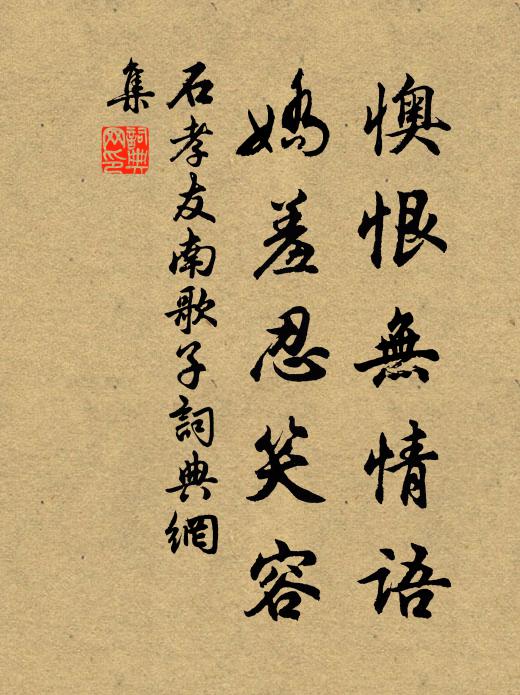 懊恨無情語
嬌羞忍笑容
石孝友南歌子詞典網
集
詞典網印